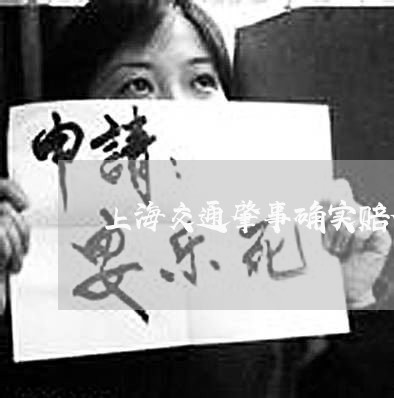 申請：
上海交通肇事确实赔
安乐死